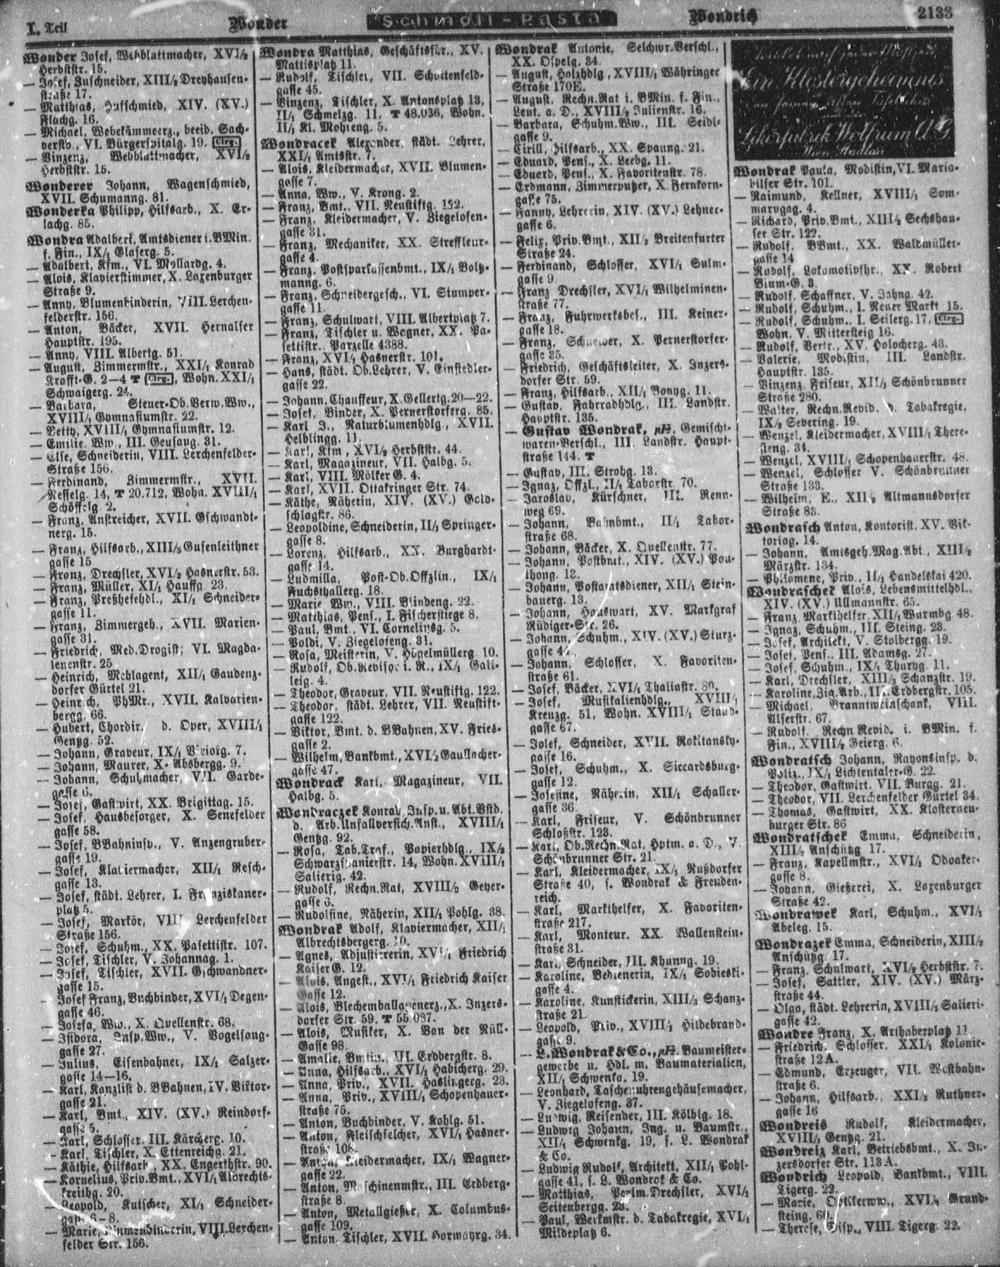 I. Teil
Wonder
Schmoll-Pasta
Wondrich
2133
Wonder Josef, Webblattmacher, XVI/2
Herbststr. 15.
— Josef, Zuschneider, XIII/2 Dreyhausen-
straße 17.
— Matthias, Hufschmied, XIV. (XV.)
Flachg. 16.
— Michael, Webekämmerz., beeid. Sach-
verstv., VI. Bürgerspitalg. 19.
— Vinzenz, Webblattmacher, XVI/2
Herbststr. 15.
Wonderer Johann, Wagenschmied,
XVII. Schumanng. 81.
Wonderka Philipp, Hilfsarb., X. Er-
lachg. 85.
Wondra Adalbert, Amtsdiener i. BMin.
f. Fin., IX/1 Glaserg. 5.
— Adalbert, Kfm., VI. Mollardg. 4.
— Alois, Klavierstimmer, X. Laxenburger
Straße 9.
— Anna, Blumenbinderin, VIII. Lerchen-
felderstr. 156.
— Anton, Bäcker, XVII. Hernalser
Hauptstr. 195.
— Anny, VIII. Albertg. 51.
— August, Zimmermstr., XXI/1 Konrad
Krafft-G. 2–4, Wohn. XXI/1
Schwaigerg. 24.
— Barbara, Steuer-Ob.Verw.Ww.,
XVIII/1 Gymnasiumstr. 22.
— Edith, XVIII/1 Gymnasiumstr. 12.
— Emilie, Ww., III. Geusaug. 31.
— Else, Schneiderin, VIII. Lerchenfelder-
Straße 156.
— Ferdinand, Zimmermstr., XVII.
Nesselg. 14, T 20.712, Wohn. XVIII/1
Schöffelg. 2.
— Franz, Anstreicher, XVII. Gschwandt-
nerg. 15.
— Franz, Hilfsarb., XIII/5 Gusenleithner
gasse 15
— Franz, Drechsler, XVI/2 Hasnerstr. 53.
— Franz, Müller, XI/1 Hauffg. 23.
— Franz, Preßhefehdl., XI/1 Schneider-
gasse 11.
— Franz, Zimmergeh., XVII. Marien-
gasse 31.
— Friedrich, Med.Drogist, VI. Magda-
lenenstr. 25
— Heinrich, Mehlagent, XII/1 Gaudenz-
dorfer Gürtel 21.
— Heinrich, PhMr., XVII. Kalvarien-
bergg. 66.
— Hubert, Chordir. d. Oper, XVIII/1
Gentzg. 52.
— Johann, Graveur, IX/1 Viriotg. 7.
— Johann, Maurer, X. Absbergg. 9.
— Johann, Schuhmacher, VII. Garde-
gasse 6.
— Josef, Gastwirt, XX. Brigittag. 15.
— Josef, Hausbesorger, X. Senefelder
gasse 58.
— Josef, BBahninsp., V. Anzengruber-
gasse 19.
— Josef, Klaviermacher, XII/1 Resch-
gasse 13.
— Josef, städt. Lehrer, I. Franziskaner-
platz 5.
— Josef, Markör, VIII. Lerchenfelder
Straße 156.
— Josef, Schuhm., XX. Pasettistr. 107.
— Josef, Tischler, V. Johannag. 1.
— Josef, Tischler, XVII. Gschwandner-
gasse 15.
— Josef Franz, Buchbinder, XVI/1 Degen-
gasse 46.
— Josefa, Ww., X. Quellenstr. 68.
— Isidora, Insp.Ww., V. Vogelsang-
gasse 27.
— Julius, Eisenbahner, IX/1 Salzer-
gasse 14–16.
— Karl, Kanzlist d. BBahnen, IV. Viktor-
gasse 21.
— Karl, Bmt., XIV. (XV.) Reindorf-
gasse 5.
— Karl, Schlosser, III. Kärcherg. 10.
— Karl, Tischler, X. Ettenreichg. 21.
— Käthie, Hilfsarb., XX. Engerthstr. 90.
— Kornelius, Priv.Bmt., XVI/1 Albrechts-
kreithg. 20.
— Leopold, Kutscher, XI/1 Schneider-
— Marie, Blumenbinderin, VIII. Lerchen-
felder Str. 156.
Wondra Matthias, Geschäftsfür., XV.
Mattisplatz 11.
— Rudolf, Tischler, VII. Schottenfeld-
gasse 45.
— Vinzenz, Tischler, X. Antonsplatz 13,
II/1 Schmelzg. 11. T 48.036, Wohn.
II/1 Kl. Mohreng. 5.
Wondracek Alexander, städt. Lehrer,
XXI/1 Amtsstr. 7.
— Alois, Kleidermacher, XVII. Blumen-
gasse 7.
— Anna, Ww., V. Krong. 2.
— Franz, Bmt., VII. Neustiftg. 122.
— Franz, Kleidermacher, V. Ziegelofen-
gasse 31.
— Franz, Mechaniker, XX. Streffleur-
gasse 4.
— Franz, Postsparkassenbmt., IX/1 Boltz-
manng. 6.
— Franz, Schneidergesch., VI. Stumper-
gasse 11.
— Franz, Schulwart, VIII. Albertplatz 7.
— Franz, Tischler u. Wagner, XX. Pa-
settistr. Parzelle 4388.
— Franz, XVI/1 Hasnerstr. 101.
— Hans, städt. Ob.Lehrer, V. Einsiedler-
gasse 22.
— Johann, Chauffeur, X. Gellertg. 20–22.
— Josef, Binder, X. Pernerstorferg. 85.
— Karl J., Naturblumenhdlg., XVII.
Helblingg. 11.
— Karl, Kfm., XVI/2 Herbststr. 44.
— Karl, Magazineur, VII. Halbg. 5.
— Karl, VIII. Mölker G. 4.
— Karl, XVII. Ottakringer Str. 74.
— Käthe, Näherin, XIV. (XV.) Gold-
schlagstr. 86.
— Leopoldine, Schneiderin, II/1 Springer-
gasse 8.
— Lorenz, Hilfsarb., XX. Burghardt-
gasse 14.
— Ludmilla, Post-Ob.Offzlin., IX/1
Fuchsthallerg. 18.
— Marie Ww., VIII. Blindeng. 22.
— Matthias, Pens., I. Fischerstiege 8.
— Paul, Bmt., VI. Corneliusg. 5.
— Poldi, V. Ziegelofeng. 31.
— Rosa, Meisterin, V. Högelmüllerg. 10.
— Rudolf, Ob.Revisor i. R., IX/1 Gali-
leig. 4.
— Theodor, Graveur, VII. Neustiftg. 122.
— Theodor, städt. Lehrer, VII. Neustift-
gasse 122.
— Viktor, Bmt. d. BBahnen, XV. Fries-
gasse 2.
— Wilhelm, Bankbmt., XVI/2 Gaullacher-
gasse 47.
Wondrack Karl, Magazineur, VII.
Halbg. 5.
Wondraczek Konrad Insp. u. Abt.Vstd.
d. Arb.Unfallversich.Anst., XVIII/1
Gentzg. 92.
— Rosa, Tab.Traf., Papierhdlg., IX/2
Schwarzspanierstr. 14, Wohn. XVIII/1
Salierig. 42.
— Rudolf, Rechn.Rat, XVIII/2 Geyer-
gasse 6.
— Rudolfine, Näherin, XII/1 Pohlg. 38.
Wondrak Adolf, Klaviermacher, XII/1
Albrechtsbergerg. 10.
— Agnes, Adjustiererin, XVI/1 Friedrich
Kaiser G. 12.
— Alois, Angest., XVI/1 Friedrich Kaiser
Gasse 12.
— Alois, Blechemballagenerz., X. Inzers-
dorfer Str. 59, T 55.087.
— Alois, Musiker, X. Von der Nüll-
Gasse 98.
— Amalie, Bmtin., III. Erdbergstr. 8.
— Anna, Hilfsarb., XVI/1 Habicherg. 29.
— Anna, Priv., XVII. Haslingerg. 23.
— Anna, Priv., XVIII/1 Schopenhauer-
straße 75.
— Anton, Buchbinder, V. Kohlg. 51.
— Anton, Fleischselcher, XVI/1 Hasner-
straße 108.
— Anton, Kleidermacher, IX/1 Wagner-
gasse 22.
— Anton, Maschinenmstr., III. Erdberg-
straße 8.
— Anton, Metallgießer, X. Columbus-
gasse 109.
— Anton, Tischler, XVII. Hormayrg. 34.
Wondrak Antonie, Selchwr.Verschl.,
XX. Ospelg. 34.
— August, Holzhdlg., XVIII/1 Währinger
Straße 170E.
— August, Rechn.Rat i. BMin. f. Fin.,
Leut. a. D., XVIII/2 Julienstr. 16.
— Barbara, Schuhm.Ww., III. Seidl-
gasse 9.
— Cirill, Hilfsarb., XX. Spaung. 21.
— Eduard, Pens., X. Leebg. 11.
— Eduard, Pens., X. Favoritenstr. 78.
— Erdmann, Zimmerputzer, X. Fernkorn-
gasse 75.
— Fanny, Lehrerin, XIV. (XV.) Lehner-
gasse 6.
— Felix, Priv.Bmt., XII/2 Breitenfurter
Straße 24.
— Ferdinand, Schlosser, XVI/1 Sulm-
gasse 9.
— Franz, Drechsler, XVI/1 Wilhelminen-
straße 77.
— Franz, Fuhrwerksbes., III. Keiner-
gasse 18.
— Franz, Schneider, X. Pernerstorfer-
gasse 35.
— Friedrich, Geschäftsleiter, X. Inzers-
dorfer Str. 59.
— Franz, Hilfsarb., XII/1 Bonyg. 11.
— Gustav, Fahrradhdlg., III. Landstr.
Hauptstr. 135.
— Gustav Wondrak, pH. Gemischt-
waren-Verschl., III. Landstr. Haupt-
straße 144. T
— Gustav, III. Strohg. 13.
— Ignaz, Offzl., II/1 Taborstr. 70.
— Jaroslav, Kürschner, III. Renn-
weg 69.
— Johann, Bahnbmt., II/1 Tabor-
straße 68.
— Johann, Bäcker, X. Quellenstr. 77.
— Johann, Postbmt., XIV. (XV.) Pou-
thong. 13.
— Johann, Postamtsdiener, XII/1 Stein-
bauerg. 13.
— Johann, Hauswart, XV. Markgraf
Rüdiger-Str. 26.
— Johann, Schuhm., XIV. (XV.) Sturz-
gasse 42.
— Johann, Schlosser, X. Favoriten-
straße 61.
— Josef, Bäcker, XVI/1 Thaliastr. 80.
— Josef, Musikalienhdlg., XVIII/1
Kreuzg. 51, Wohn. XVIII/1 Staud-
gasse 67.
— Josef, Schneider, XVII. Rokitansky-
gasse 16.
— Josef, Schuhm., X. Siccardsburg-
gasse 12.
— Josefine, Näherin, XII/1 Schaller-
gasse 36.
— Karl, Friseur, V. Schönbrunner
Schloßstr. 123.
— Karl, Ob.Rechn.Rat, Hptm. a. D., V.
Schönbrunner Str. 21.
— Karl, Kleidermacher, IX/1 Nußdorfer
Straße 40, s. Wondrak & Freuden-
reich.
— Karl, Markthelfer, X. Favoriten-
straße 217.
— Karl, Monteur, XX. Wallenstein-
straße 31.
— Karl, Schneider, III. Khunng. 19.
— Karoline, Bedienerin, IX/1 Sobieski-
gasse 4.
— Karoline, Kunststickerin, XIII/3 Schanz-
straße 21.
— Leopold, Priv., XVIII/2 Hildebrand-
gasse 9.
— L. Wondrak & Co., pH. Baumeister-
gewerbe u. Hdl. m. Baumaterialien,
XII/1 Schwenkg. 19.
— Leonhard, Taschenuhrengehäusemacher,
V. Ziegelofeng. 37.
— Ludwig, Reisender, III. Kölblg. 18.
— Ludwig Johann, Ing. u. Baumstr.,
XII/1 Schwenkg. 19, s. L. Wondrak
& Co.
— Ludwig Rudolf, Architekt, XII/1 Pohl-
gasse 41, s. L. Wondrak & Co.
— Matthias, Perlm.Drechsler, XVI/1
Seitenbergg. 23.
— Paul, Werkmstr. d. Tabakregie, XVI/1
Mildeplatz 6.
Ein Küstergeheimnis
Lackfabrik Wolfrum A.G.
Wondrak Paula, Modistin, VI. Maria-
hilfer Str. 101.
— Raimund, Kellner, XVIII/1 Som-
marugag. 4.
— Richard, Priv.Bmt., XIII/4 Sechshau-
ser Str. 122.
— Rudolf, BBmt., XX. Waldmüller-
gasse 14
— Rudolf, Lokomotivfhr., XX. Robert
Blum-G. 3.
— Rudolf, Schaffner, V. Jahng. 42.
— Rudolf, Schuhm., I. Neuer Markt 15.
— Rudolf, Schuhm., I. Seilerg. 17,
Wohn. V. Mittersteig 16.
— Rudolf, Vertr., XV. Holocherg. 43.
— Valerie, Modistin, III. Landstr.
Hauptstr. 135.
— Vinzenz, Friseur, XII/1 Schönbrunner
Straße 280.
— Walter, Rechn.Revid. d. Tabakregie,
IX/2 Severing. 19.
— Wenzel, Kleidermacher, XVIII/1 There-
sieng. 34.
— Wenzel, XVIII/1 Schopenhauerstr. 48.
— Wenzel, Schlosser, V. Schönbrunner
Straße 133.
— Wilhelm, E., XII/2 Altmannsdorfer
Straße 83.
Wondrasch Anton, Kontorist, XV. Vik-
toriag. 14.
— Johann, Amtsgeh.Mag.Abt., XIII/2
Märzstr. 134.
— Philomene, Priv., II/1 Handelskai 420.
Wondraschek Alois, Lebensmittelhdl.,
XIV. (XV.) Ullmannstr. 65.
— Franz, Markthelfer, XII/1 Wurmbg. 48.
— Ignaz, Schuhm., III. Steing. 23.
— Josef, Architekt, V. Stolbergg. 19.
— Josef, Pens., III. Adamsg. 27.
— Josef, Schuhm., IX/4 Thuryg. 11.
— Karl, Drechsler, XIII/3 Schanzstr. 19.
— Karoline, Zig.Arb., III. Erdbergstr. 105.
— Michael, Branntweinschank, VIII.
Alserstr. 67.
— Rudolf, Rechn.Revid. i. BMin. f.
Fin., XVIII/4 Geierg. 6.
Wondratsch Johann, Rayonsinsp. d.
Poliz., IX/4 Lichtentaler-G. 22.
— Theodor, Gastwirt, VII. Burgg. 21.
— Theodor, VII. Lerchenfelder Gürtel 34.
— Thomas, Gastwirt, XX. Klosterneu-
burger Str. 86
Wondratschek Emma, Schneiderin,
XIII/1 Anschützg. 17.
— Franz, Kapellmstr., XVI/1 Odoaker-
gasse 8.
— Johann, Gießerei, X. Laxenburger
Straße 42.
Wondrawek Karl, Schuhm., XVI/1
Abeleg. 15.
Wondrazek Emma, Schneiderin, XIII/2
Anschützg. 17.
— Franz, Schulwart, XVI/2 Herbststr. 7.
— Josef, Sattler, XIV. (XV.) März-
straße 44.
— Olga, städt. Lehrerin, XVIII/1 Salieri-
gasse 42.
Wondre Franz, X. Arthaberplatz 11
— Friedrich, Schlosser, XXI/1 Kolonie-
straße 12 A.
— Edmund, Erzeuger, VII. Westbahn-
straße 6.
— Johann, Hilfsarb., XXI/3 Ruthner-
gasse 16
Wondreis Rudolf, Kleidermacher,
XVIII/1 Gentzg. 21.
Wondreiz Karl, Betriebsbmt., X. In-
zersdorfer Str. 113 A.
Wondrich Leopold, Bankbmt., VIII.
Tigerg. 22.
— Marie, XVI/1 Grund-
steing. 60.
— Therese, Disp., VIII. Tigerg. 22.